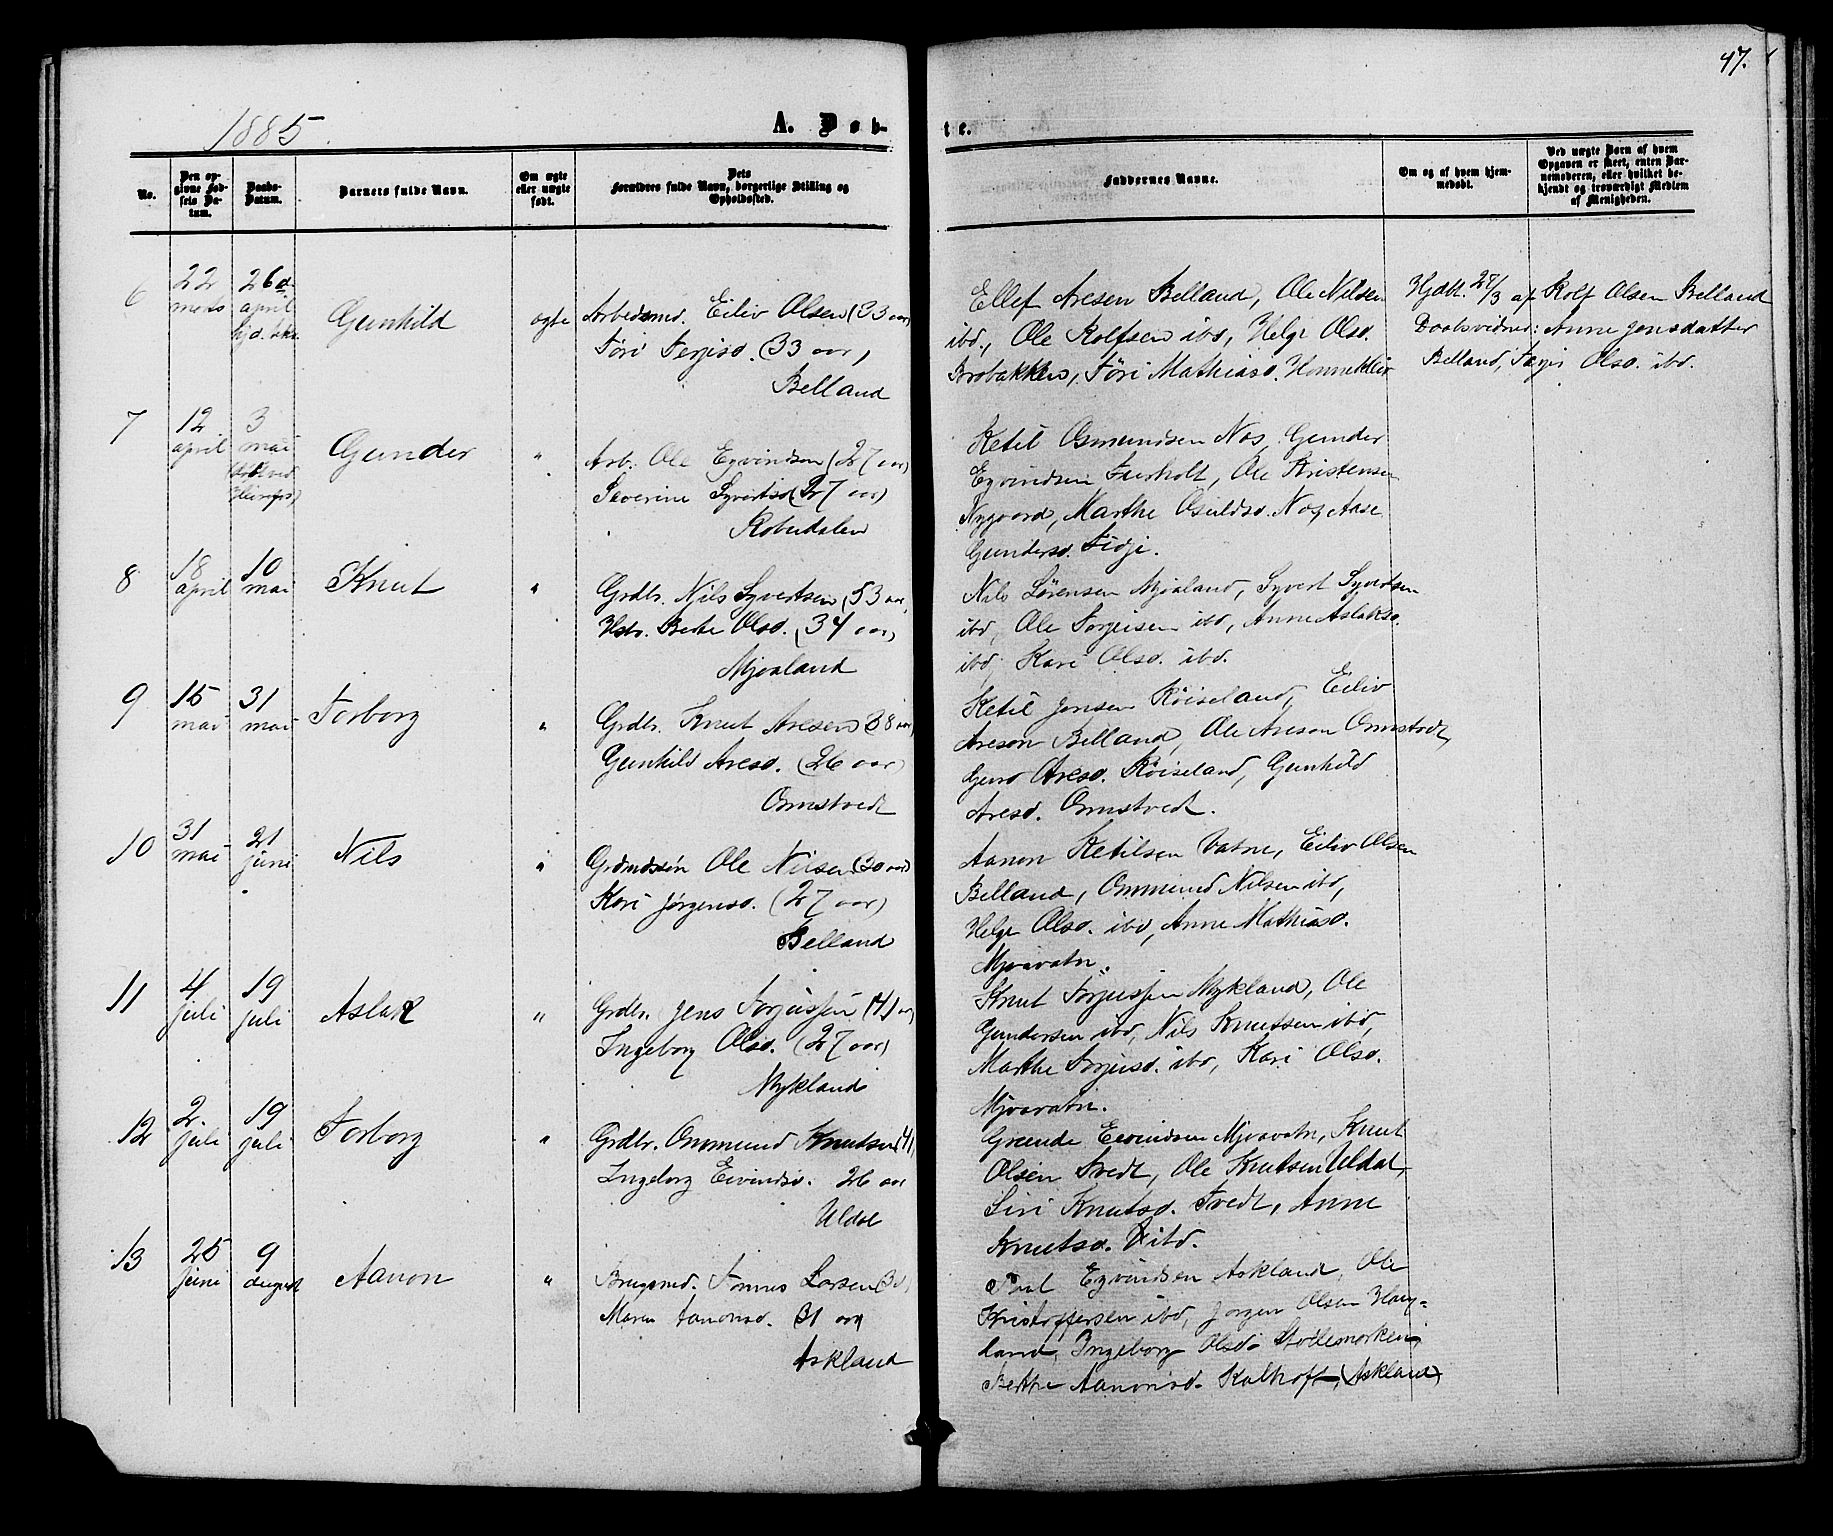 47.
1885.
A. Døb-
te.
No.
Den opgivne Fødsels Datum.
Daabs-Datum.
Barnets fulde Navn.
Om ægte eller uægte født.
Dets Forældres fulde Navn, borgerlige Stilling og Opholdssted.
Faddernes Navne.
Om og af hvem hjemmedøbt.
Ved uægte Børn af hvem Opgaven er skeet, enten Barnemoderen, eller hvilket bekjendt og troværdigt Medlem af Menigheden.
6
22 marts
26de april
Gunhild
ægte
Arbedsmd. Eiliv Olsen (33 aar)
Tøri Terjisd. (33 aar)
Belland
Ellef Aresen Belland, Ole Nilsen
ibd., Ole Rolfsen ibd, Helge Olsd.
Brobakken, Tøri Mathiasd.
Hjdbt. 27/3 af Rolf Olsen Belland
Daabsvidner: Anne Jensdatter
Belland, Olsd. ibd.
7
12 april
3 mai
Gunder
"
Arb. Ole Eyvindsen (27 aar)
Severine Syvertsd (27 aar)
Robudalen
Ketil Osmundsen Næs, Gunder
Eyvindsen Furholt, Ole Kristensen
Nygaard, Marthe Osuldsd. Næs, Aase
Gundersd. Fidje.
8
18 april
10 mai
Knut
"
Grdbr. Nils Syvertsen (53 aar,
Hstr. Berte Olsd. (34 aar)
Mjaaland
Nils Sørensen Mjaaland, Syvert Syvertsen
ibd, Ole Torjusen ibd, Anne Aslaksd.
ibd, Kari Olsd. ibd.
9
15 mai
31 mai
Torborg
"
Grdbr. Knut Aresen (38 aar)
Gunhild Aresd. (26 aar)
Ormstvedt
Ketil Jensen Røiseland, Eiliv
Areson Belland, Ole Areson Ormstvedt,
Guro Aresd. Røiseland, Gunhild
Aresd. Ormstvedt.
10
31 mai
21 juni
Nils
"
Grdmdssøn Ole Nilsen (30 aar)
Kari Jørgensd. (27 aar)
Belland
Aanon Ketilsen Vatne, Eiliv Olsen
Belland, Ommund Nilsen ibd,
Helge Olsd. ibd, Anne Mathiasd.
Mjaavatn.
11
4 juli
19 juli
Aslak
"
Grdbr. Jens Torjussen (41 aar)
Ingeborg Olsd. (27 aar)
Mykland
Knut Torjussen Mykland, Ole
Gundersen ibd, Nils Knutsen ibd,
Marthe Torjusd. ibd, Kari Olsd.
Mjaavatn.
12
2. juli
19 juli
Torborg
"
Grdbr. Ommund Knutsen (41,
Ingeborg Eivindsd. 26 aar
Uldal
Eivindsen Mjaavatn, Knut
Olsen Tvedt, Ole Knutsen Uldal,
Siri Knutsd. Tvedt, Anne
Knutsd. ibd.
13
25 juni
9 august
Aanon
"
Brugsmd. Tønnes Larsen
Maren Aanonsd. (31 aar)
Askland
Eyvindsen Askland, Ole
Kristoffersen ibd, Jørgen Olsen Haug-
land, Ingeborg Olsd.
Berthe Aanonsd. Kalhoft, (Askland)